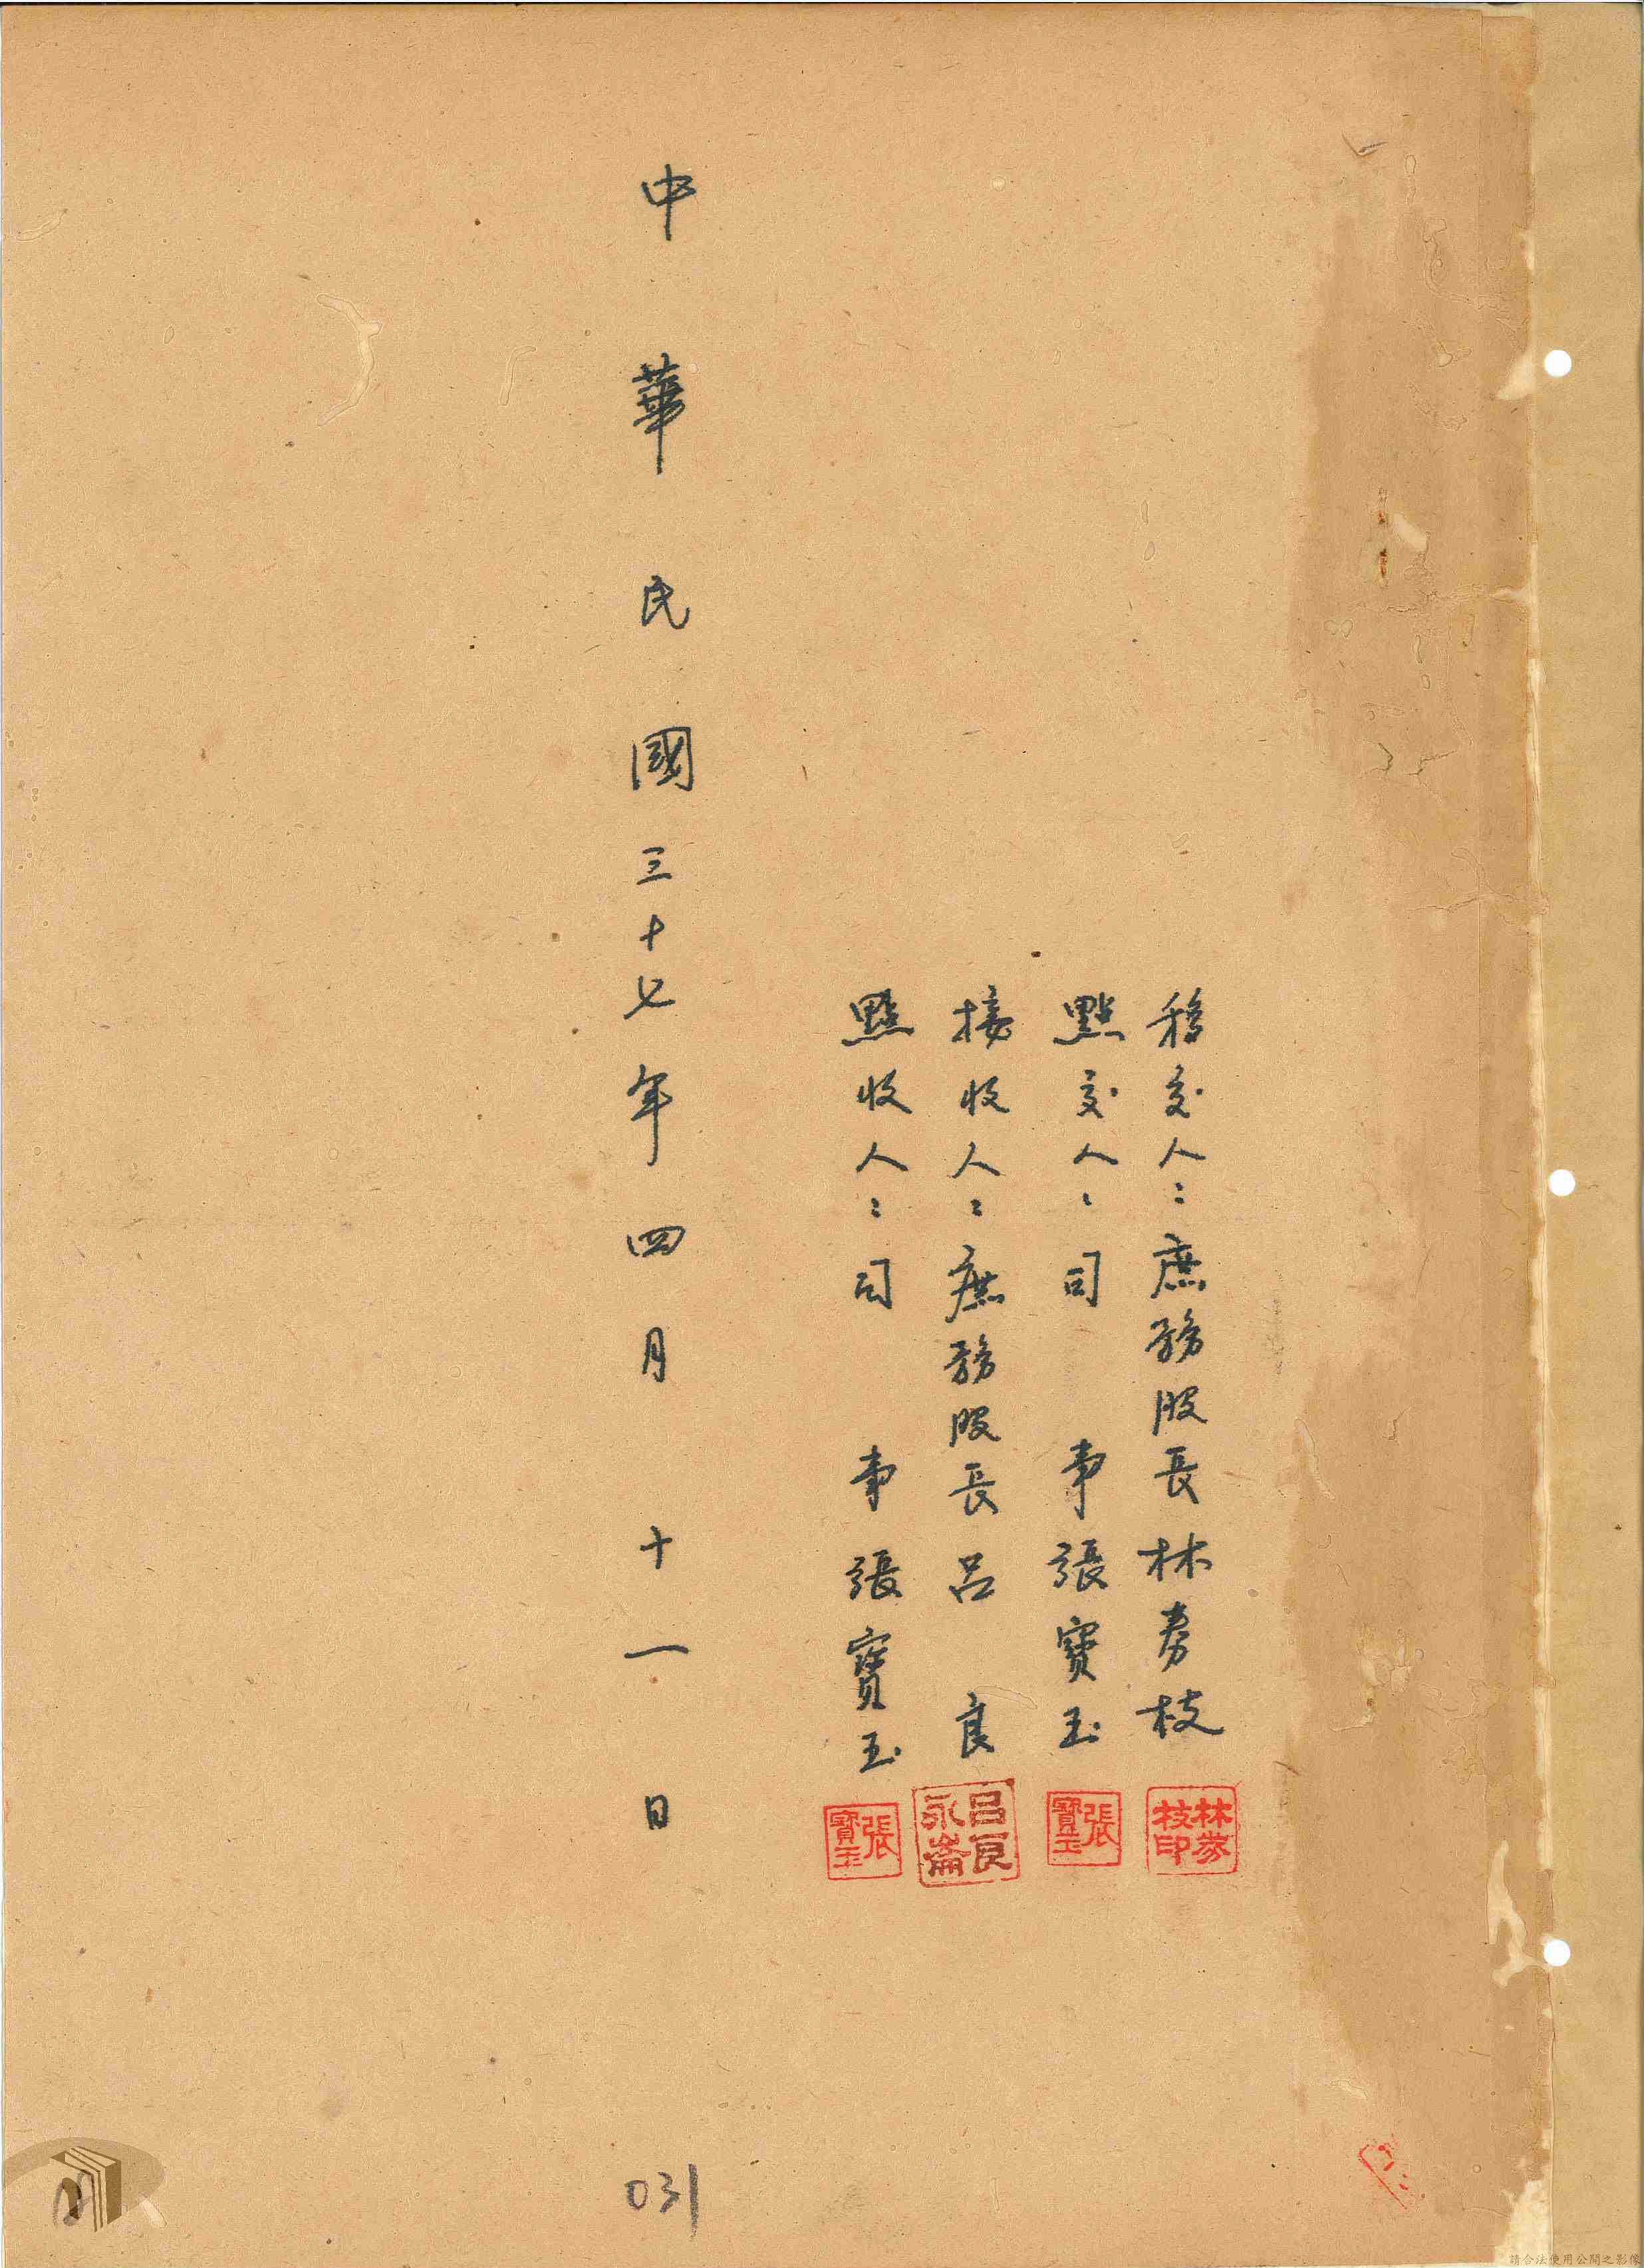 移交人：庶務股長林勞枝
點交人：司事張寶玉
接收人：庶務股長呂良
點收人：司事張寶玉
林勞枝印
張寶玉
呂良永崙
張寶玉
中華民國三十七年四月十一日
031
請合法使用公開之影像